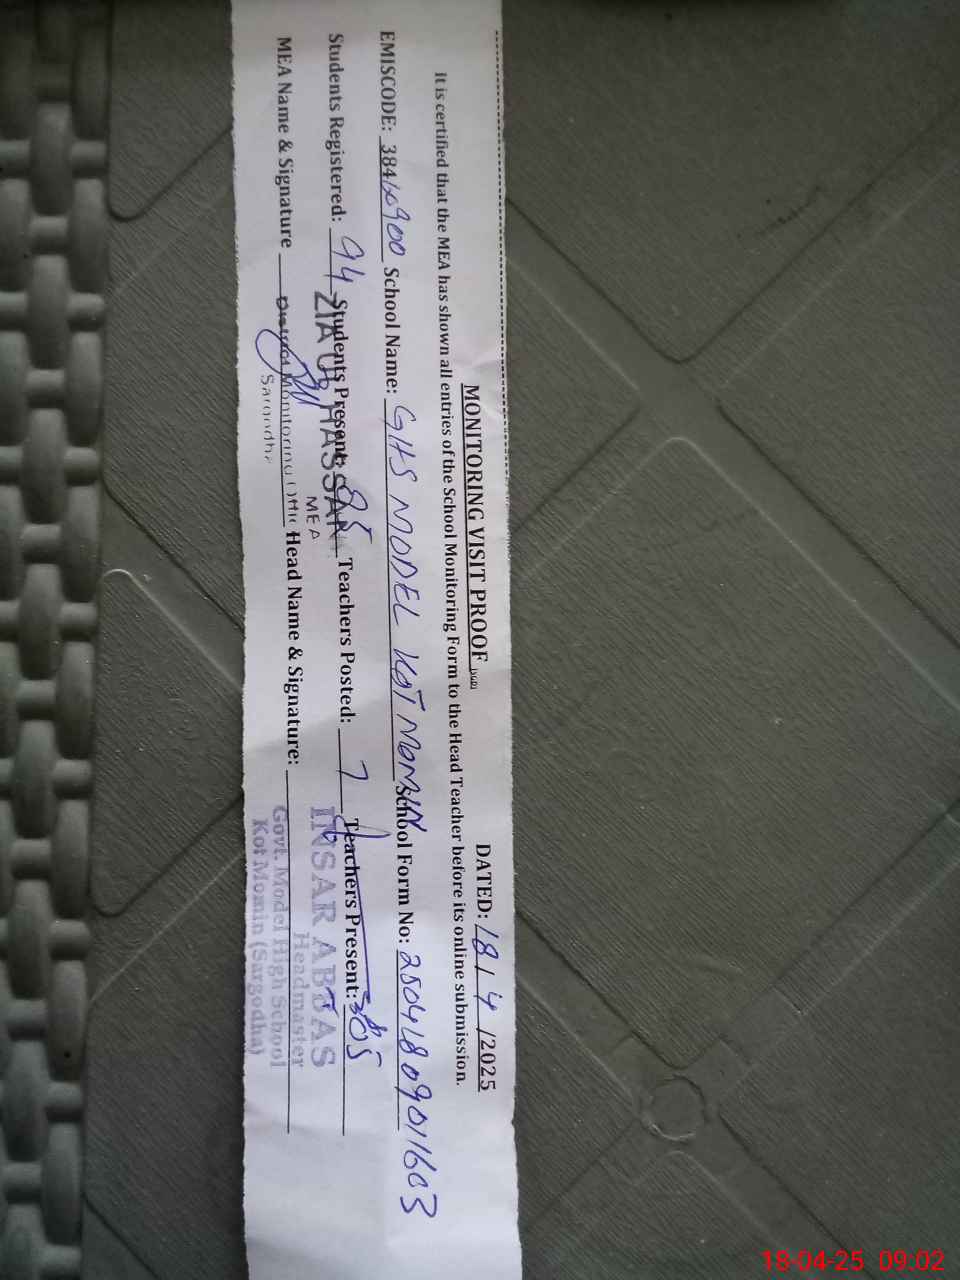 MONITORING VISIT PROOF (SGD) DATED: 18/4/2025
It is certified that the MEA has shown all entries of the School Monitoring Form to the Head Teacher before its online submission.
EMISCODE: 384 School Name: GHS MODEL KOT MOMIN School Form No: 25041809011603
Students Registered: 94 Students Present: 85 Teachers Posted: 7 Teachers Present: 05
ZIA UL HASSAN
MEA
MEA Name & Signature District Monitoring Head Name & Signature:
Sargodha
ABBAS
Headmaster
Govt. Model High School
Kot Momin (Sargodha)
18-04-25 09:02